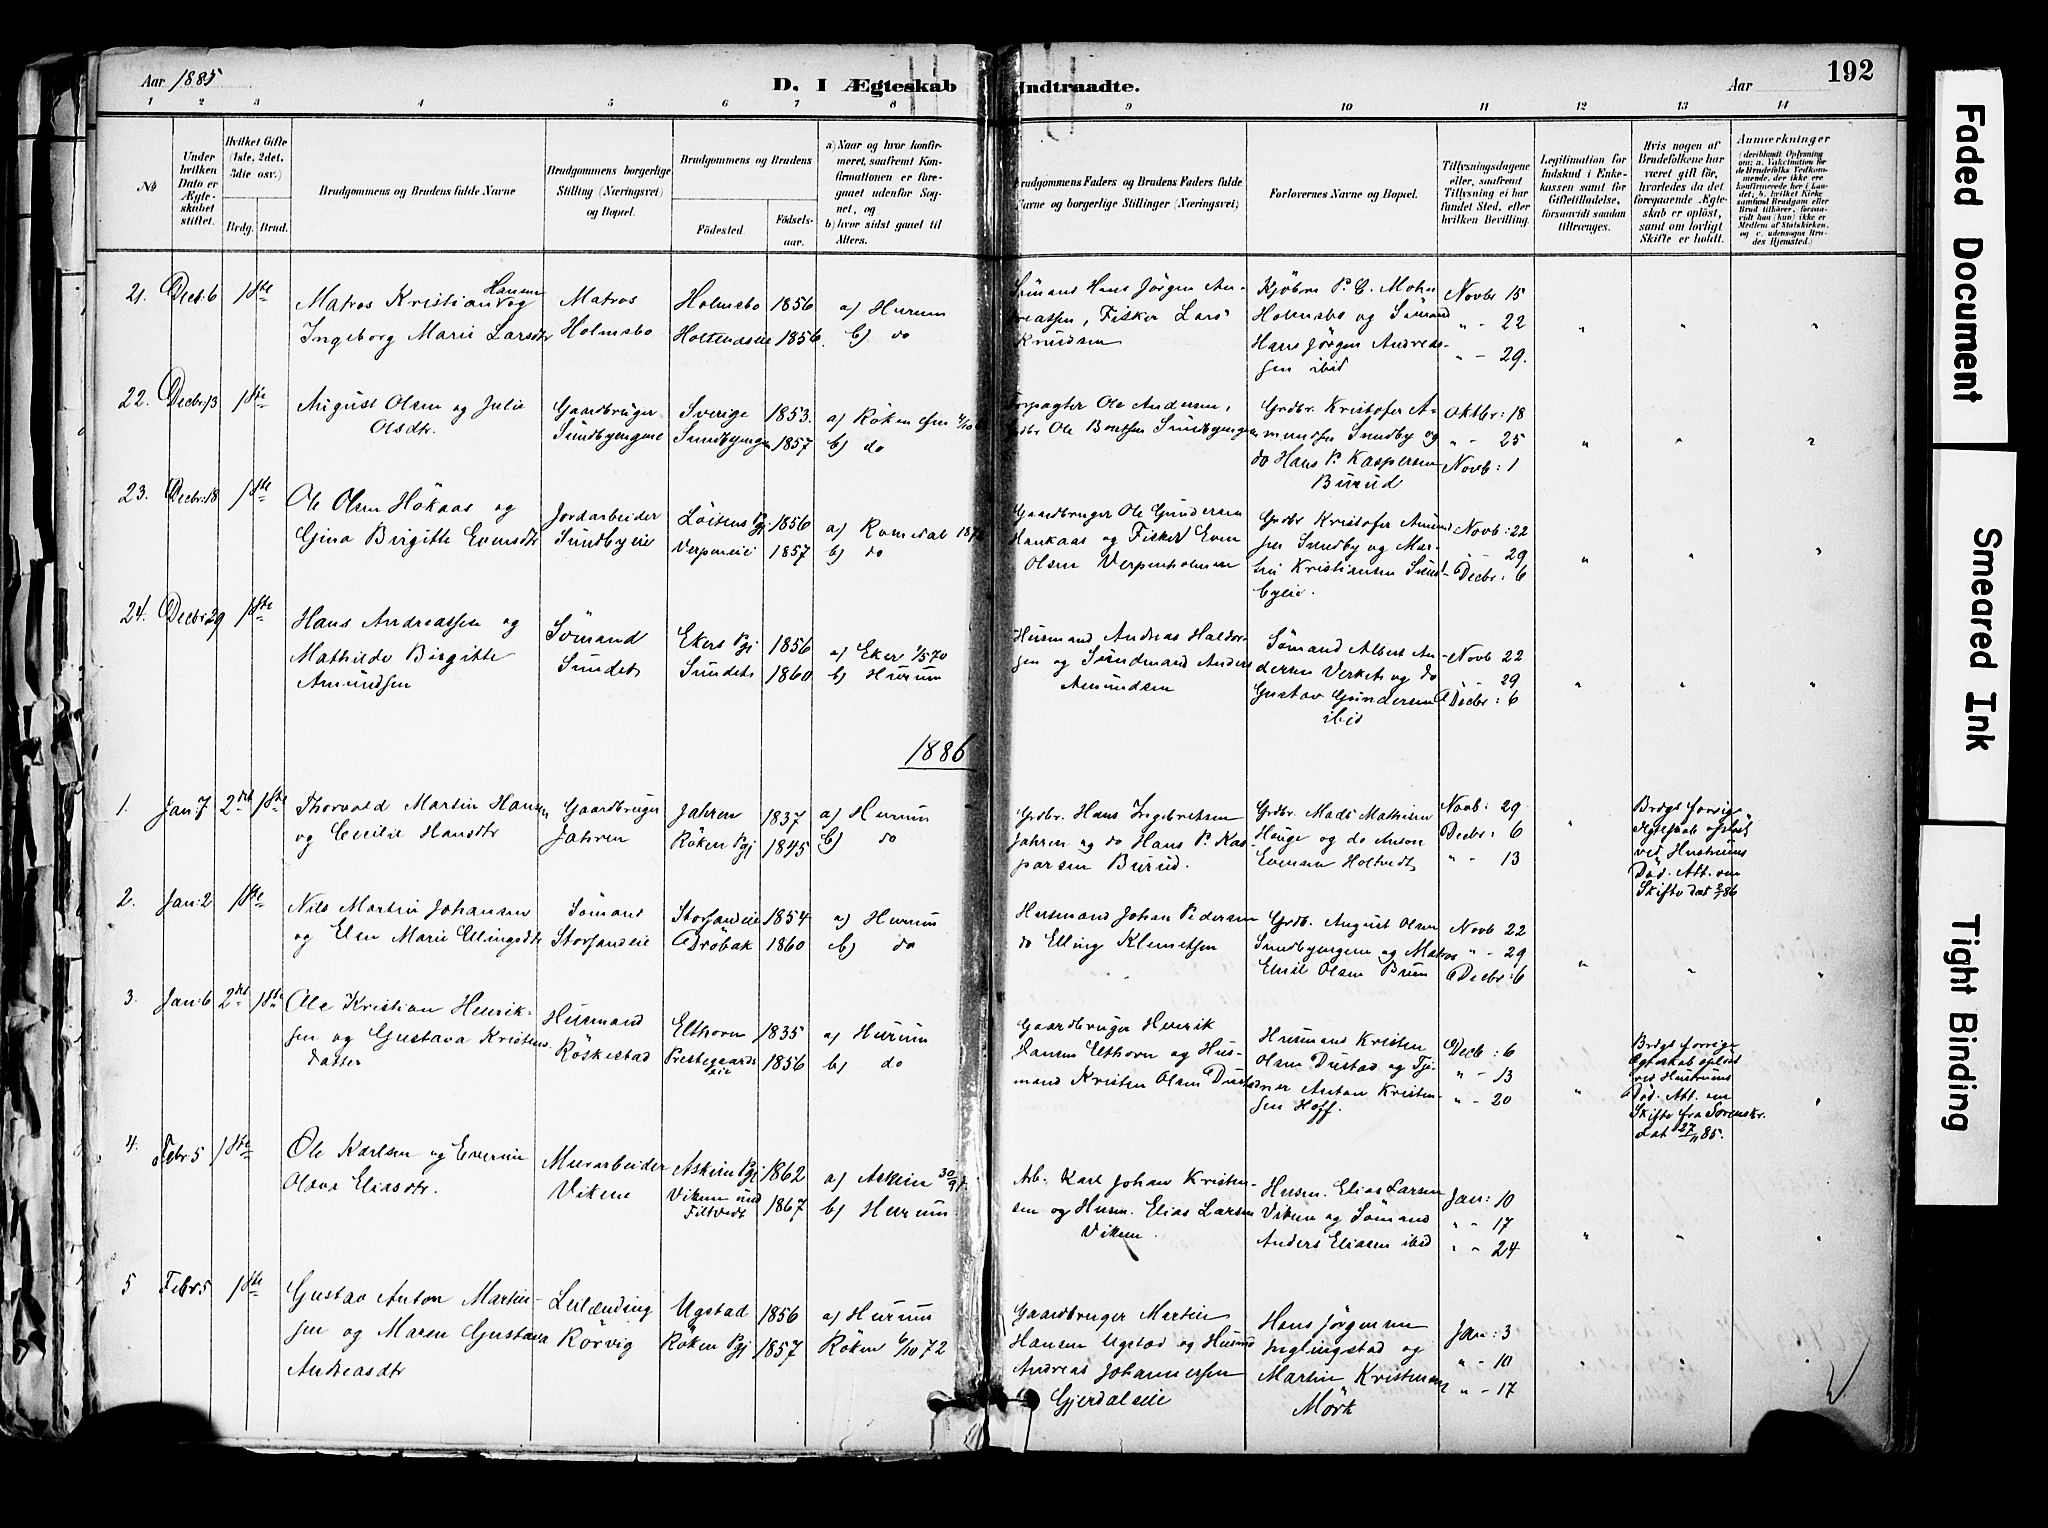 Aar 1885
D. I Ægteskab Indtraadte.
Aar
192
1 2 3 4 5 6 7 8 9 10 11 12 13 14
No
Under hvilken Dato er Ægteskabet stiftet.
Hvilket Gifte (1ste, 2det, 3die osv.)
Brdg. Brud.
Brudgommens og Brudens fulde Navne
Brudgommens borgerlige Stilling (Næringsvei) og Bopæl.
Brudgommens og Brudens
Fødested. Fødselsaar.
a) Naar og hvor konfirmeret, saafremt Konfirmationen er foregaaet udenfor Sognet, og
b) hvor sidst gaaet til Alters.
Brudgommens Faders og Brudens Faders fulde Navne og borgerlige Stillinger (Næringsvei)
Forlovernes Navne og Bopæl.
Tillysningsdagene eller, saafremt Tillysning ei har fundet Sted, efter hvilken Bevilling.
Legitimation for Indskud i Enkekassen samt for Giftetilladelse, forsaavidt saadan tiltrænges.
Hvis nogen af Brudefolkene har været gift før, hvorledes da det foregaaende Ægteskab er opløst, samt om lovligt Skifte er holdt.
Anmærkninger
21. Decb: 6 1ste
Matros Kristian Hansen og
Ingeborg Marie Larsdtr
Matros
Holmsbo
Holmsbo 1856
Holtenæseie 1856.
a) Hurum
b) do
Sømand Hans Jørgen Andreassen, Fisker Lars
Knudsen
Kjøbm P. C. Mohn
Holmsbo og Sømand
Hans Jörgen Andreassen ibid
Novbr 15
" - 22
" - 29.
22. Decbr: 13 1ste
August Olsen og Julie
Olsdtr.
Gaardbruger
Sundbyengene
Sverige 1853.
Sundbyengen 1857
a) Röken
b) do
Forpagter Ole Andersen,
Grdbr Ole Berntsen Sundbyengen
Grdbr. Kristofer Amundsen Sundby og
do Hans P. Kaspersen
Burud
Oktbr: 18
" - 25
Novb: 1
23. Decbr: 18 1ste
Ole Olsen Hökaas og
Gina Birgitte Evensdtr
Jordarbeider
Sundbyeie
Löitens Pgj 1856
Verpeneie 1857
a) Romedal
b) do
Gaardbruger Ole Gundersen
Haukaas og Fisker Even
Olsen Verpenholmen
Grdbr Kristofer Amundsen Sundby og Martin Kristiansen Sundbyeie.
Novb: 22
- 29
Decbr: 6
24. Decbr 29 1ste
Hans Andreassen og
Mathilde Birgitte
Amundsen
Sömand
Sundet
Ekers Pgj 1856
Sundet 1860
a) Eker 1/5 70
b) Hurum
Husmand Andreas Haldorsen og Sundmand Anders
Amundsen
Sömand Albert Andersen Verket og do
Gustav Gundersen
ibid
Novb 22
- 29
Decbr: 6
1886
1. Jan: 7 2det 1ste
Thorvald Martin Hansen
og Cecilie Hansdtr
Gaardbruger
Jahren
Jahren 1837
Röken Pgj 1845
a) Hurum
b) do
Grdbr. Hans Ingebretsen
Jahren og do Hans P. Kaspersen Burud.
Grdbr. Mads Mathisen
Hauge og do Anton
Evensen Holtvedt
Novb: 29
Decbr: 6
" - 13
Brdgs forrige
Ægteskab opløst
ved Hustruens
Död. Att. om
Skifte dat 2/1 86
2. Jan: 2 1ste
Nils Martin Johansen
og Elen Marie Ellingsdtr
Sömand
Storsandeie
Storsandeie 1854
Dröbak 1860
a) Hurum
b) do
Husmand Johan Pedersen
do Elling Klemetsen
Grdb. August Olsen
Sundbyengene og Matros
Emil Olsen Brun
Novb 22
" - 29
Decbr: 6
3. Jan: 6 2det 1ste
Ole Kristian Henriksen og Gustava Kristensdatter
Husmand
Röskestad
Elthorn 1835
Prestegaardseie 1856
a) Hurum
b) do
Gaardbruger Henrik
Hansen Elthorn og Husmand Kristen Olsen Dustad
Husmand Kristen
Olsen Dustad og Tjener Anton Kristensen Hoff.
Decb: 6
" - 13
" - 20
Brdgs forrige
Ægteskab opløst
ved Hustruens
Död. Att. om
Skifte fra Sorenskr.
dat 27/11 85.
4. Febr 5 1ste
Ole Karlsen og Evenine
Olava Eliasdtr.
Murarbeider
Vikene
Askim Pgj 1862
Vikene und Filtvedt 1867
a) Askim
b) Hurum
Arb. Karl Johan Kristensen og Husm. Elias Larsen
Viken.
Husm. Elias Larsen
Viken og Sömand
Anders Eliasen ibid
Jan: 10
" - 17
" - 24
5 Febr 5 1ste
Gustav Anton Martinsen og Maren Gustava
Andreasdtr
Leilænding
Rörvig
Ugstad 1856
Röken Pgj 1857
a) Hurum
Röken 6/10 72
Gaardbruger Martin
Hansen Ugstad og Husmd
Andreas Johannessen
Gjerdalseie
Hans Jörgensen
Inglingstad og
Martin Kristiansen
Mörk
Jan: 3
" - 10
" - 17
Faded Document
Smeared Ink
Tight Binding